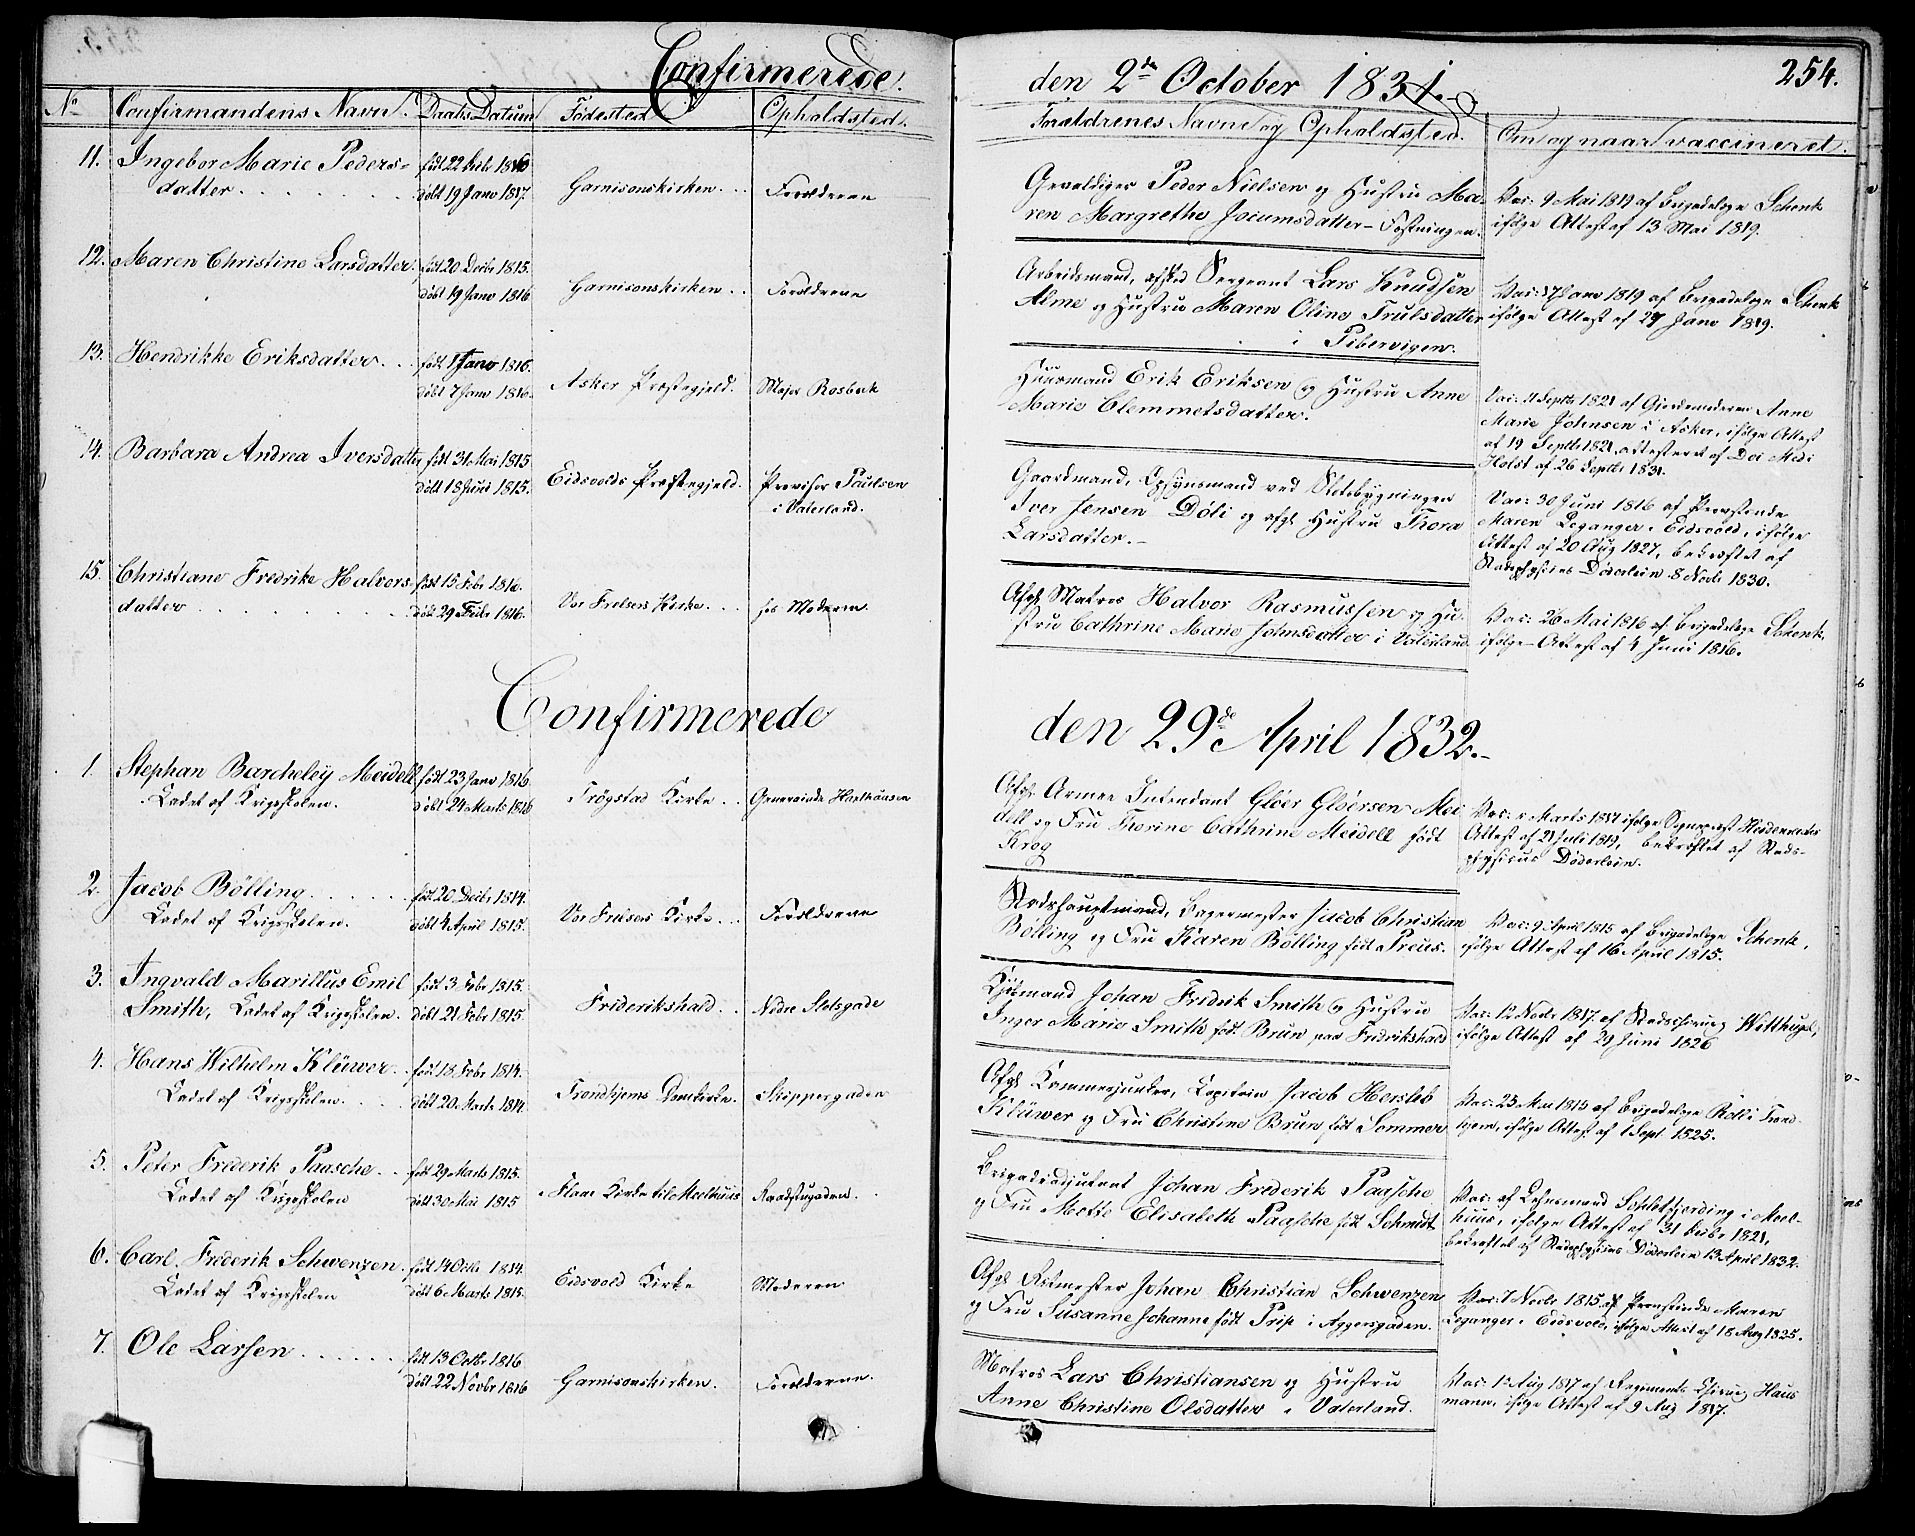 Confirmerede
den 2de October 1831.
254.
No
Confirmandens Navn.
Daabs Datum
Fødested
Opholdsted.
Forældrenes Navne og Opholdsted.
Om og naar vaccineret.
11. Ingebor Marie Peders-
datter
født 22 Decbr 1816
døbt 19 Janr 1817.
Garnisonskirken
Forældrene
Gevaldiger Peder Nielsen og Hustru Ma-
ren Margrethe Jocumsdatter - Fæstningen.
Vac: 9 Mai 1819 af Brigadelæge Schenk
ifølge Attest af 13 Mai 1819.
12. Maren Christine Larsdatter.
født 20 Decbr 1815.
døbt 19 Janr 1816
Garnisonskirken
Forældrene
Arbeidsmand, afsked Sergeant Lars Knudsen
Alme og Hustru Maren Oline Trulsdatter
i Pibervigen.
Vac: 17 Janr 1819 af Brigadelæge Schenk
ifølge Attest af 27 Janr 1819.
13. Hendrikke Eriksdatter
født 1 Janr 1816.
døbt 7 Janr 1816.
Asker Præstegjeld.
Major Rosbeck
Huusmand Erik Eriksen og Hustru Anne
Marie Clemmetsdatter.
Vac: 11 Septbr 1821 af Gjordemoderen Anne
Marie Johnsen i Asker, ifølge Attest
af 19 Septbr 1821, attesteret af Doc Medi
Holst af 26 Septbr 1831.
14. Barbara Andrea Iversdatter
født 31 Mai 1815
døbt 18 Juni 1815.
Eidsvolds Præstegjeld.
Provisor Poulsen
i Vaterland.
Gaardmand, Opsynsmand ved Slotsbygningen
Iver Jensen Døli og afg: Hustru Thora
Larsdatter.
Vac: 30 Juni 1816 af Provstinde
Maren Leganger i Eidsvold, ifølge
Attest af 20 Aug 1827, bekræftet af
Stadsphysicus Døderlein 8 Novbr 1830.
15. Christiane Fredrike Halvors-
datter
født 15 Febr 1816.
døbt 29 Febr 1816.
Vor Frelsers Kirke
hos Moderen.
Afg: Matros Halvor Rasmussen og Hu-
stru Cathrine Marie Johnsdatter i Vaterland
Vac: 26 Mai 1816 af Brigadelæge Schenk,
ifølge Attest af 4 Juni 1816.
Confirmerede
den 29de April 1832.
1. Stephan Barcheley Meidell
Cadet af Krigsskolen.
født 23 Janr 1816
døbt 24 Marts 1816
Trøgstad Kirke
Generalinde Haxthausen
Afg: Armee Intendant Gløer Gløersen Mei
dell og Fru Thorine Cathrine Meidell født
Krog
Marts 1817 ifølge Sogneprest
Attest af 21 Juli 1819, bekræftet af Stads-
physicus Døderlein.
2. Jacob Bølling
Cadet af Krigsskolen.
født 20 Decbr 1814.
døbt 4 April 1815.
Vor Frelsers Kirke
Forældrene
Stadshauptmand, Bagermester Jacob Christian
Bølling og Fru Karen Bølling født Preus.
Vac: 9 April 1815 af Brigadelæge Schenk,
ifølge Attest af 16 April 1815.
3. Ingvald Marillus Emil
Smith, Cadet af Krigsskolen.
født 3 Febr 1815.
døbt 21 Febr 1815.
Friderikshald
Nedre Slotsgade
Kjøbmand Johan Fredrik Smith og Hustru
Inger Marie Smith født Brun paa Fredrikshald
Vac: 12 Novbr 1817. af Stadschirurg Witthugel,
ifølge Attest af 29 Juni 1826
4. Hans Wilhelm Klüwer
Cadet af Krigsskolen.
født 18 Febr 1814.
døbt 20 Marts 1814.
Trondhjems Domkirke.
Skippergaden
Afg: Kammerjunker, Capitain Jacob Hersleb
Klüwer og Fru Christine Brun født Sommer
Vac: 23 Mai 1815 af Brigadelæge Roll i Trond-
hjem, ifølge Attest af 1 Sept 1825.
5. Peter Frederik Paasche
Cadet af Krigsskolen
født 29 Marts 1815.
døbt 30 Mai 1815
Flaae Kirke til Meelhuus
Raadstugaden.
Brigadeadjutant Johan Frederik Paasche
og Fru Mette Elisabeth Paasche født Schmidt
Vac: af Lehnsmand Schletfjerding i Meel-
huus, ifølge Attest af 31 Decbr 1821,
bekræftet af Stadsphysicus Døderlein 13 April 1832.
6. Carl Frederik Schwenzen.
Cadet af Krigsskolen
født 14 Octbr 1814.
døbt 6 Marts 1815.
Eidsvold Kirke
Moderen
Afg: Ritmester Johan Christian Schwenzen
og Fru Susanne Johanne født Prip i Aggersgaden.
Vac: 7 Novbr 1815 af Provstinde Maren
Leganger i Eidsvold, ifølge Attest af 18 Aug 1825.
7. Ole Larsen
født 13 Octbr 1816
døbt 22 Novbr 1816
Garnisonskirken.
Forældrene.
Matros Lars Christiansen og Hustru
Anne Christine Olsdatter i Vaterland.
Vac: 12 Aug 1817 af Regiments Chirurg Haus
mann, ifølge Attest af 9 Aug 1817.